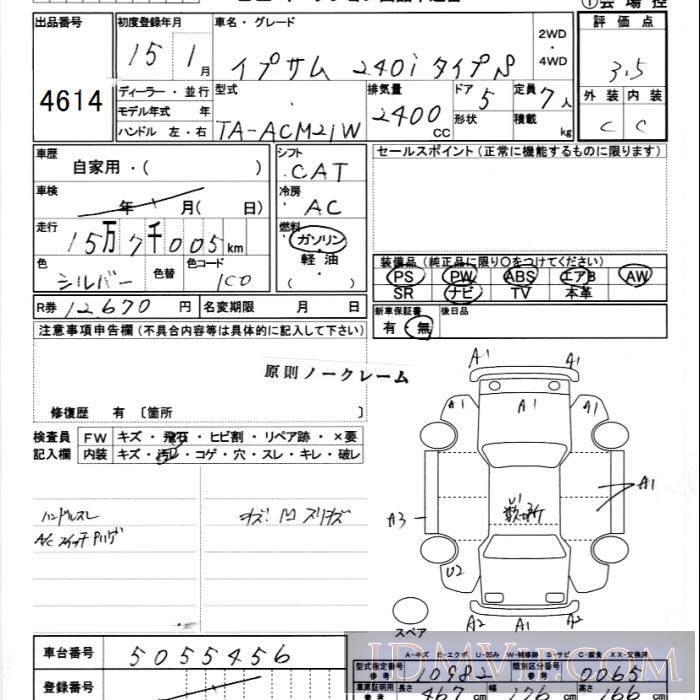 ①会場控
出品番号
4614
初度登録年月
15 1月
車名・グレード
イプサム 240i タイプS
2WD
・
4WD
評価点
3.5
ディーラー・並行
モデル年式 年
ハンドル 左・右
型式
TA-ACM21W
排気量
2400 CC
ドア 5
形状
定員 7人
積載 kg
外装 内装
C C
車歴
自家用・( )
車検
年 月( 日)
走行
15万7千005km
色 シルバー
色替
色コード 1C0
シフト
CAT
冷房
AC
燃料
ガソリン
軽油
( )
セールスポイント(正常に機能するものに限ります)
装備品(純正品に限り○をつけてください)
PS PW ABS エアB AW
SR ナビ TV 本革
R券 12,670円
名変期限 月 日
新車保証書
有・無
後日品
注意事項申告欄(不具合内容等は具体的に記入して下さい)
原則ノークレーム
修復歴 有 〔箇所 〕
検査員
記入欄
FW キズ・飛石・ヒビ割・リペア跡・×要
内装 キズ・汚れ・コゲ・穴・スレ・キレ・破レ
ハンドルスレ
A/Cスイッチ
キズ!凹スリキズ
A1 A1
A1 A1 A1
U1
A3
A1
U2
A2 A1 A2
スペア
A-キズ E-エクボ U-凹み W-補修跡 S-サビ C-腐食 XX-交換済
車台番号
5055456
登録番号
型式指定番号
参考
10982
類別区分番号
参考
0065
車庫証明用
参考
長さ 467cm 幅 176cm 高さ 166cm
JDMVIP.COM